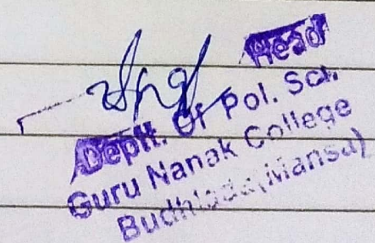 Head
Deptt. Of Pol. Sci.
Guru Nanak College
Budhlada (Mansa)